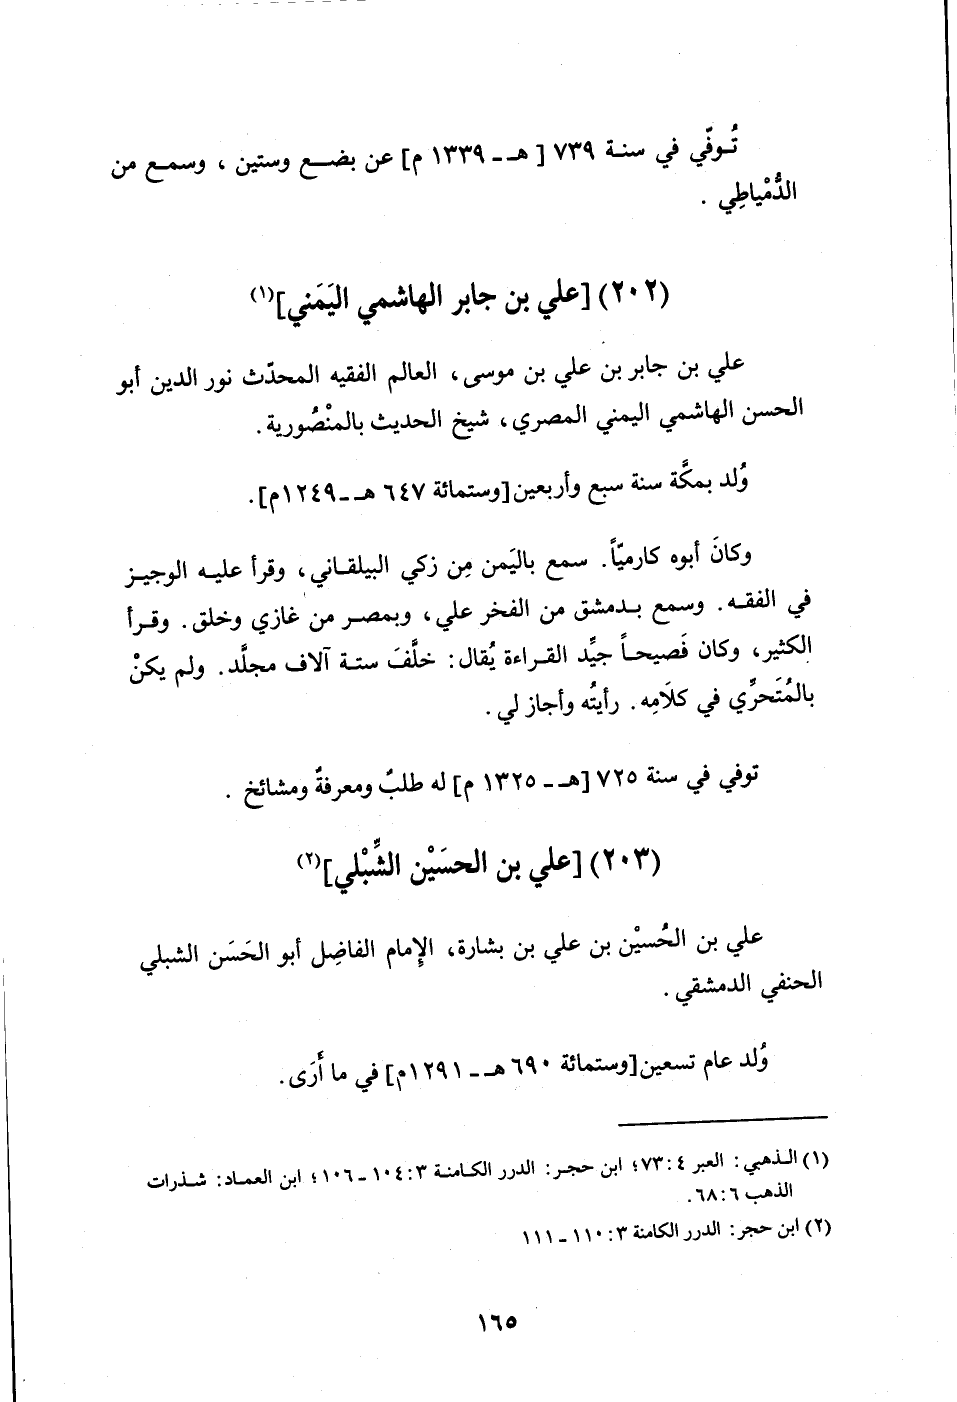 تُوفّي في سنة ٧٣٩ [ هـ ـ ١٣٣٩ م] عن بضع وستين ، وسمع من
الدُّمْياطِي .
(٢٠٢) [علي بن جابر الهاشمي اليَمَني](١)
علي بن جابر بن علي بن موسى، العالم الفقيه المحدّث نور الدين أبو
الحسن الهاشمي اليمني المصري، شيخ الحديث بالمنْصُورية.
وُلد بمكَّة سنة سبع وأربعين[وستمائة ٦٤٧ هـ ـ ١٢٤٩م].
وكانَ أبوه كارميّاً. سمع باليَمن مِن زكي البيلقاني، وقرأ عليه الوجيز
في الفقه. وسمع بدمشق من الفخر علي، وبمصر من غازي وخلق. وقرأ
الكثير، وكان فَصيحاً جيِّد القراءة يُقال: خلَّفَ ستة آلاف مجلَّد. ولم يكنْ
بالمُتَحرِّي في كلَامِه. رأيتُه وأجاز لي.
توفي في سنة ٧٢٥ [هـ ـ ١٣٢٥ م] له طلبٌ ومعرفةٌ ومشائخ .
(٢٠٣) [علي بن الحسَيْن الشِّبْلي](٢)
علي بن الحُسيْن بن علي بن بشارة، الإمام الفاضِل أبو الحَسَن الشبلي
الحنفي الدمشقي.
وُلد عام تسعين[وستمائة ٦٩٠ هـ ـ ١٢٩١م] في ما أَرَى.
(١) الذهبي: العبر ٤ :٧٣؛ ابن حجر: الدرر الكامنة ٣ :١٠٤ ـ ١٠٦؛ ابن العماد: شذرات
الذهب ٦ :٦٨.
(٢) ابن حجر: الدرر الكامنة ٣ :١١٠ ـ ١١١
١٦٥